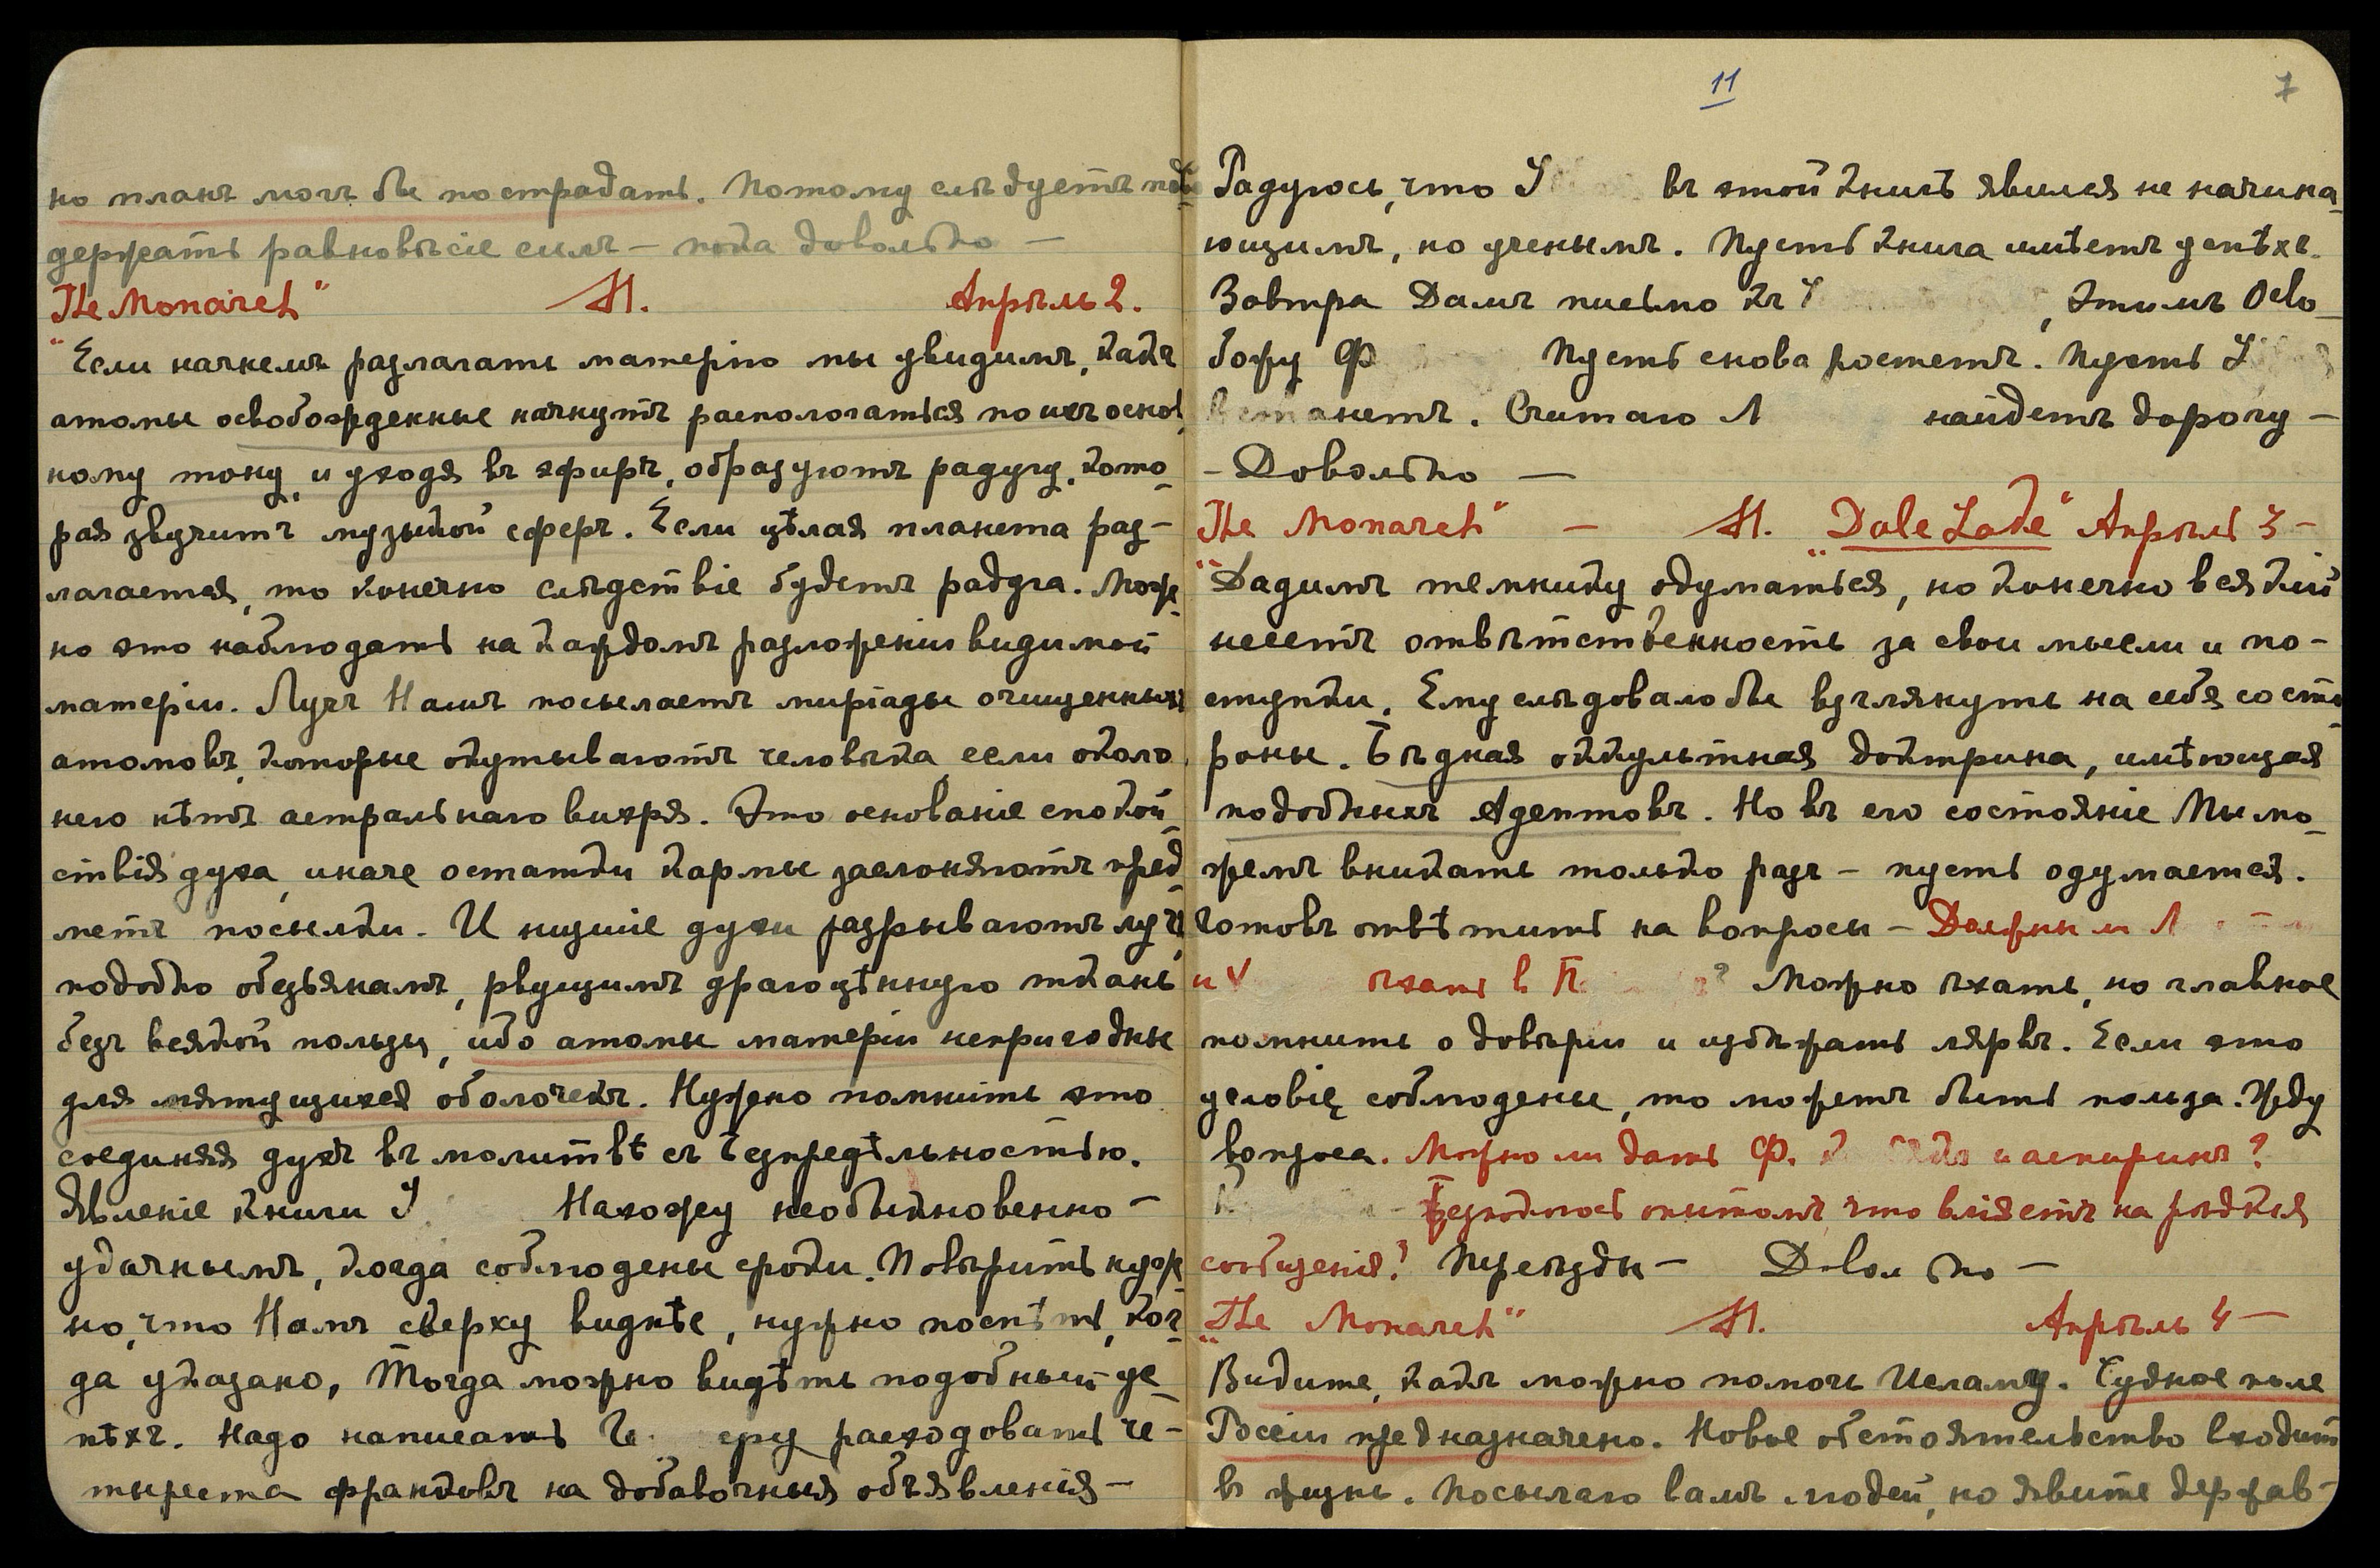 но планъ могъ бы пострадать. Потому слѣдуетъ
держать равновѣсіе силъ – пока довольно —
The Monarch" М. Апрѣль 2.
"Если начнемъ разлагать матерію мы увидимъ, какъ
атомы освобожденные начнутъ распологаться по ихъ основ
ному тону, и уходя въ эфиръ, образуютъ радугу, кото-
рая звучитъ музыкой сферъ. Если цѣлая планета раз-
лагается, то конечно слѣдствіе будетъ радуга. Мож-
но это наблюдать на каждомъ разложеніи видимой
матеріи. Лучъ Нашъ посылаетъ миріады очищенныхъ
атомовъ, которые окутываютъ человѣка если около
него нѣтъ астральнаго вихря. Это основаніе спокой-
ствія духа, иначе остатки кармы заслоняютъ пред-
метъ посылки. И низшіе духи разрываютъ лучъ,
подобно обезьянамъ, рвущимъ драгоцѣнную ткань
безъ всякой пользы, ибо атомы матеріи непригодны
для мятущихся оболочекъ. Нужно помнить это
соединяя духъ въ молитвѣ съ Безпредѣльностью.
Явленіе книги У Нахожу необыкновенно –
удачнымъ, когда соблюдены сроки. Повѣрить нуж
но, что Намъ сверху виднѣе, нужно поспѣть, ког-
да указано, Тогда можно видѣть подобный ус-
пѣхъ. Надо написать еру расходовать че-
тыреста франковъ на добавочныя объявленія –
11
7
Радуюсь, что У въ этой книгѣ явился не начина-
ющимъ, но ученымъ. Пусть книга имѣетъ успѣхъ.
Завтра Дамъ письмо къ , Этимъ Осво-
божу Ф Пусть снова ростетъ. Пусть У
встанетъ. Считаю Л найдетъ дорогу –
– Довольно —
The Monarch" – М. "Dale Lade" Апрѣль 3 –
"Дадимъ темнику одуматься, но конечно всякій
несетъ отвѣтственность за свои мысли и по-
ступки. Ему слѣдовало бы взглянуть на себя со сто-
роны. Бѣдная оккультная доктрина, имѣющая
подобныхъ Адептовъ. Но въ его состояніе Мы мо-
жемъ вникать только разъ – пусть одумается.
Готовъ отвѣтить на вопросы – Должны ли Л
и У ѣхать в П ? Можно ѣхать, но главное
помнить о довѣріи и избѣжать лярвъ. Если это
условіе соблюдены, то можетъ быть польза. Жду
вопроса. Можно ли дать Ф. и аспиринъ?
что вліяетъ на рѣдкія
сообщенія? Переѣзды – Довольно —
"The Monarch" М. Апрѣль 4 —
Видите, какъ можно помочь Исламу. Чудное поле
Россіи предназначено. Новое обстоятельство входит
въ жизнь. Посылаю вамъ людей, но явите держав-